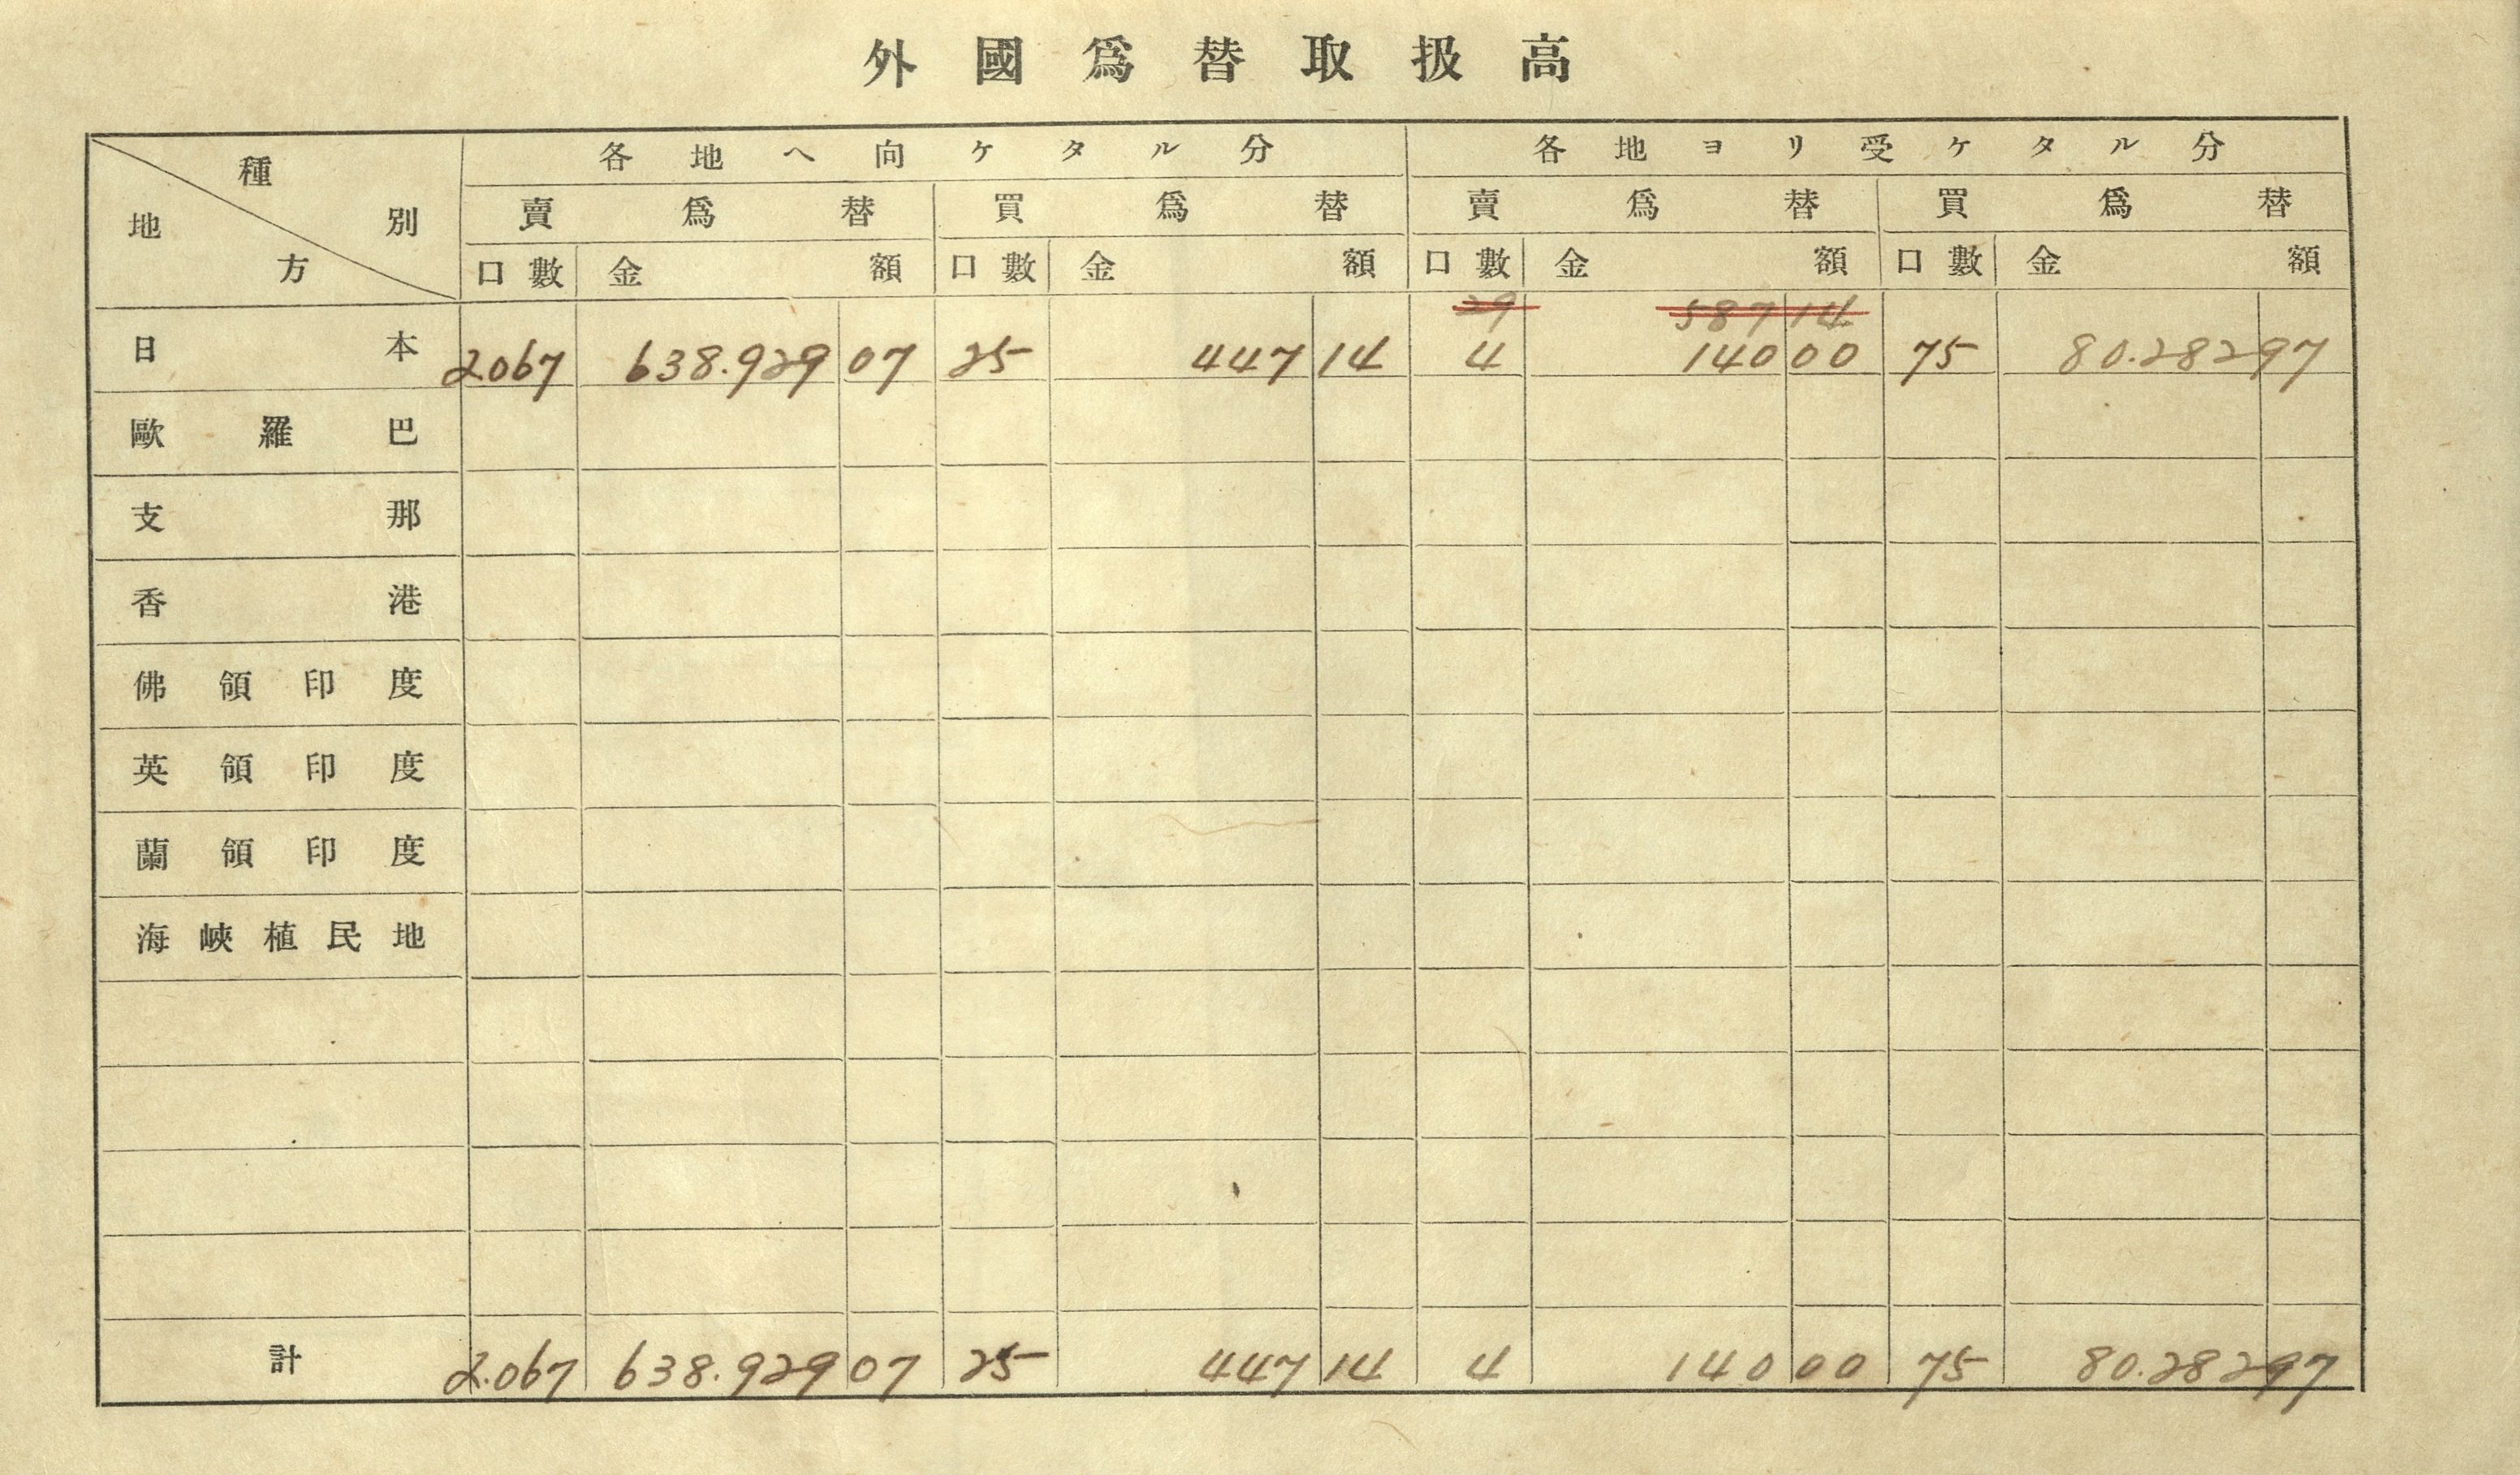 外國爲替取扱高
種別 地方 各地ヘ向ケタル分 各地ヨリ受ケタル分
賣爲替 買爲替 賣爲替 買爲替
口數 金額 口數 金額 口數 金額 口數 金額
29 587 14
日本 2067 638.929 07 25 447 14 4 140 00 75 80.282 97
歐羅巴
支那
香港
佛領印度
英領印度
蘭領印度
海峽植民地
計 2.067 638.929 07 25 447 14 4 140 00 75 80.282 97